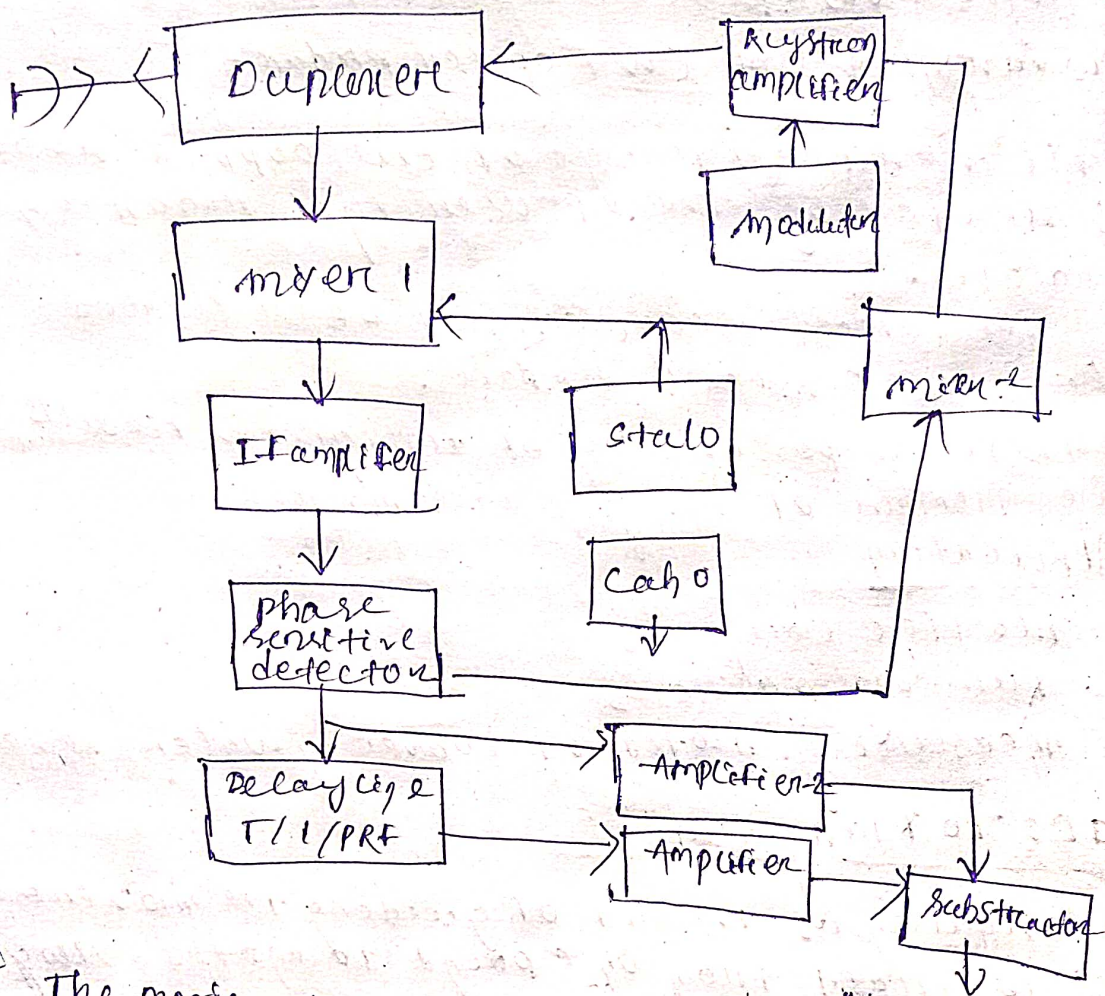 Duplexer
Klystron
amplifier
Modulator
mixer 1
mixer-2
IF amplifer
Stalo
Coho
phase
sensitive
detector
Delay line
T/1/PRF
Amplifier-2
Amplifier
Substractor
The